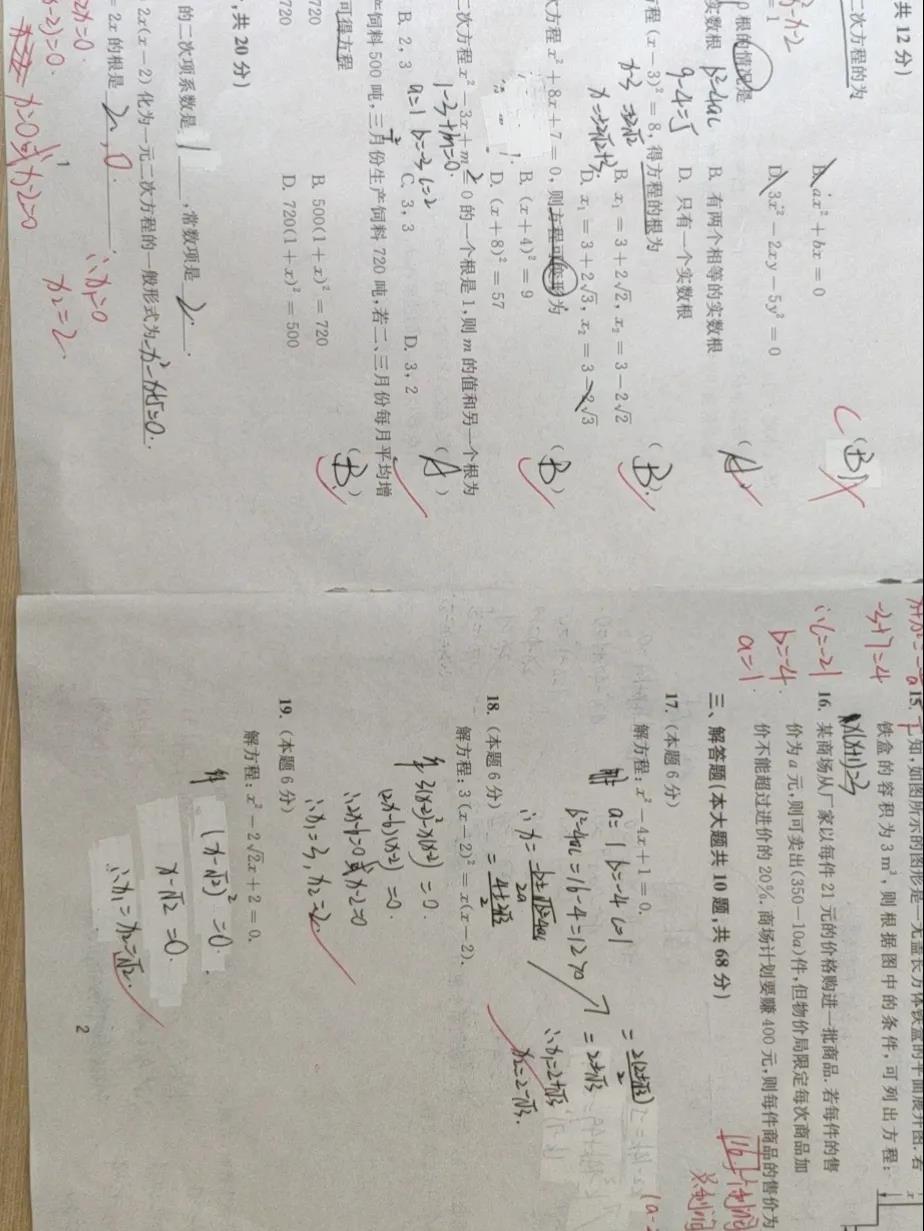 共 12 分)
二次方程的为
D. ax² + bx = 0
D. 3x² − 2xy − 5y² = 0
(B)
C
根的情况是
b²-4ac
9-4=5
B. 有两个相等的实数根
实数根
D. 只有一个实数根
(A)
程 (x − 3)² = 8, 得方程的根为
x-3=±2√2
x=±2√2+3
B. x₁ = 3 + 2√2, x₂ = 3 − 2√2
D. x₁ = 3 + 2√3, x₂ = 3 − 2√3
(B)
次方程 x² + 8x + 7 = 0, 则方程可变形为
B. (x + 4)² = 9
D. (x + 8)² = 57
(B)
二次方程 x² − 3x + m = 0 的一个根是 1, 则 m 的值和另一个根为
1-3+m=0
a=1 b=-3 c=2
B. 2, 3
C. 3, 3
D. 3, 2
(A)
产饲料 500 吨, 三月份生产饲料 720 吨, 若二、三月份每月平均增
可得方程
720
B. 500(1 + x)² = 720
720
D. 720(1 + x)² = 500
(B)
, 共 20 分)
的二次项系数是 1 , 常数项是 2 .
2x(x − 2) 化为一元二次方程的一般形式为 x²-4x+5=0.
= 2x 的根是 2, 0.
x-2)=0.
x=0或x-2=0
∴x₁=0
x₂=2
-3+7=4
∴c=-21
b=-4
a=1
15.
知, 如图所示的图形是一无盖长方体铁盒的平面展开图. 若
铁盒的容积为 3 m³, 则根据图中的条件, 可列出方程:
x(x+1)=3
16. 某商场从厂家以每件 21 元的价格购进一批商品. 若每件的售
价为 a 元, 则可卖出(350−10a)件, 但物价局限定每次商品加
价不能超过进价的 20%. 商场计划要赚 400 元, 则每件商品的售价为
三、解答题(本大题共 10 题, 共 68 分)
17. (本题 6 分)
解方程: x² − 4x + 1 = 0.
解 a=1 b=-4 c=1
b²-4ac=16-4=12>0
∴x=(-b±√b²-4ac)/2a
=(4±2√3)/2
=2(2±√3)/2
=2±√3
∴x₁=2+√3
x₂=2-√3.
18. (本题 6 分)
解方程: 3(x − 2)² = x(x − 2).
解 3(x-2)²-x(x-2)=0.
(2x-6)(x-2)=0.
∴2x-6=0或x-2=0
∴x₁=3, x₂=2.
19. (本题 6 分)
解方程: x² − 2√2x + 2 = 0.
解 (x-√2)²=0.
x-√2=0.
∴x₁=x₂=√2.
2